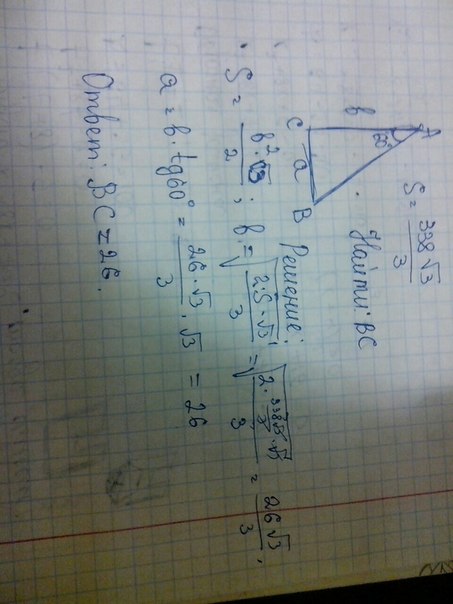 S = \frac{338\sqrt{3}}{3}
Найти: BC
A
60°
b
C
a
B
Решение:
S = \frac{b^2 \cdot \sqrt{3}}{2}; b = \sqrt{\frac{2 \cdot S \cdot \sqrt{3}}{3}} = \sqrt{\frac{2 \cdot \frac{338\sqrt{3}}{3} \cdot \sqrt{3}}{3}} = \frac{26\sqrt{3}}{3};
a = b \cdot tg60° = \frac{26 \cdot \sqrt{3}}{3} \cdot \sqrt{3} = 26
Ответ: BC = 26.